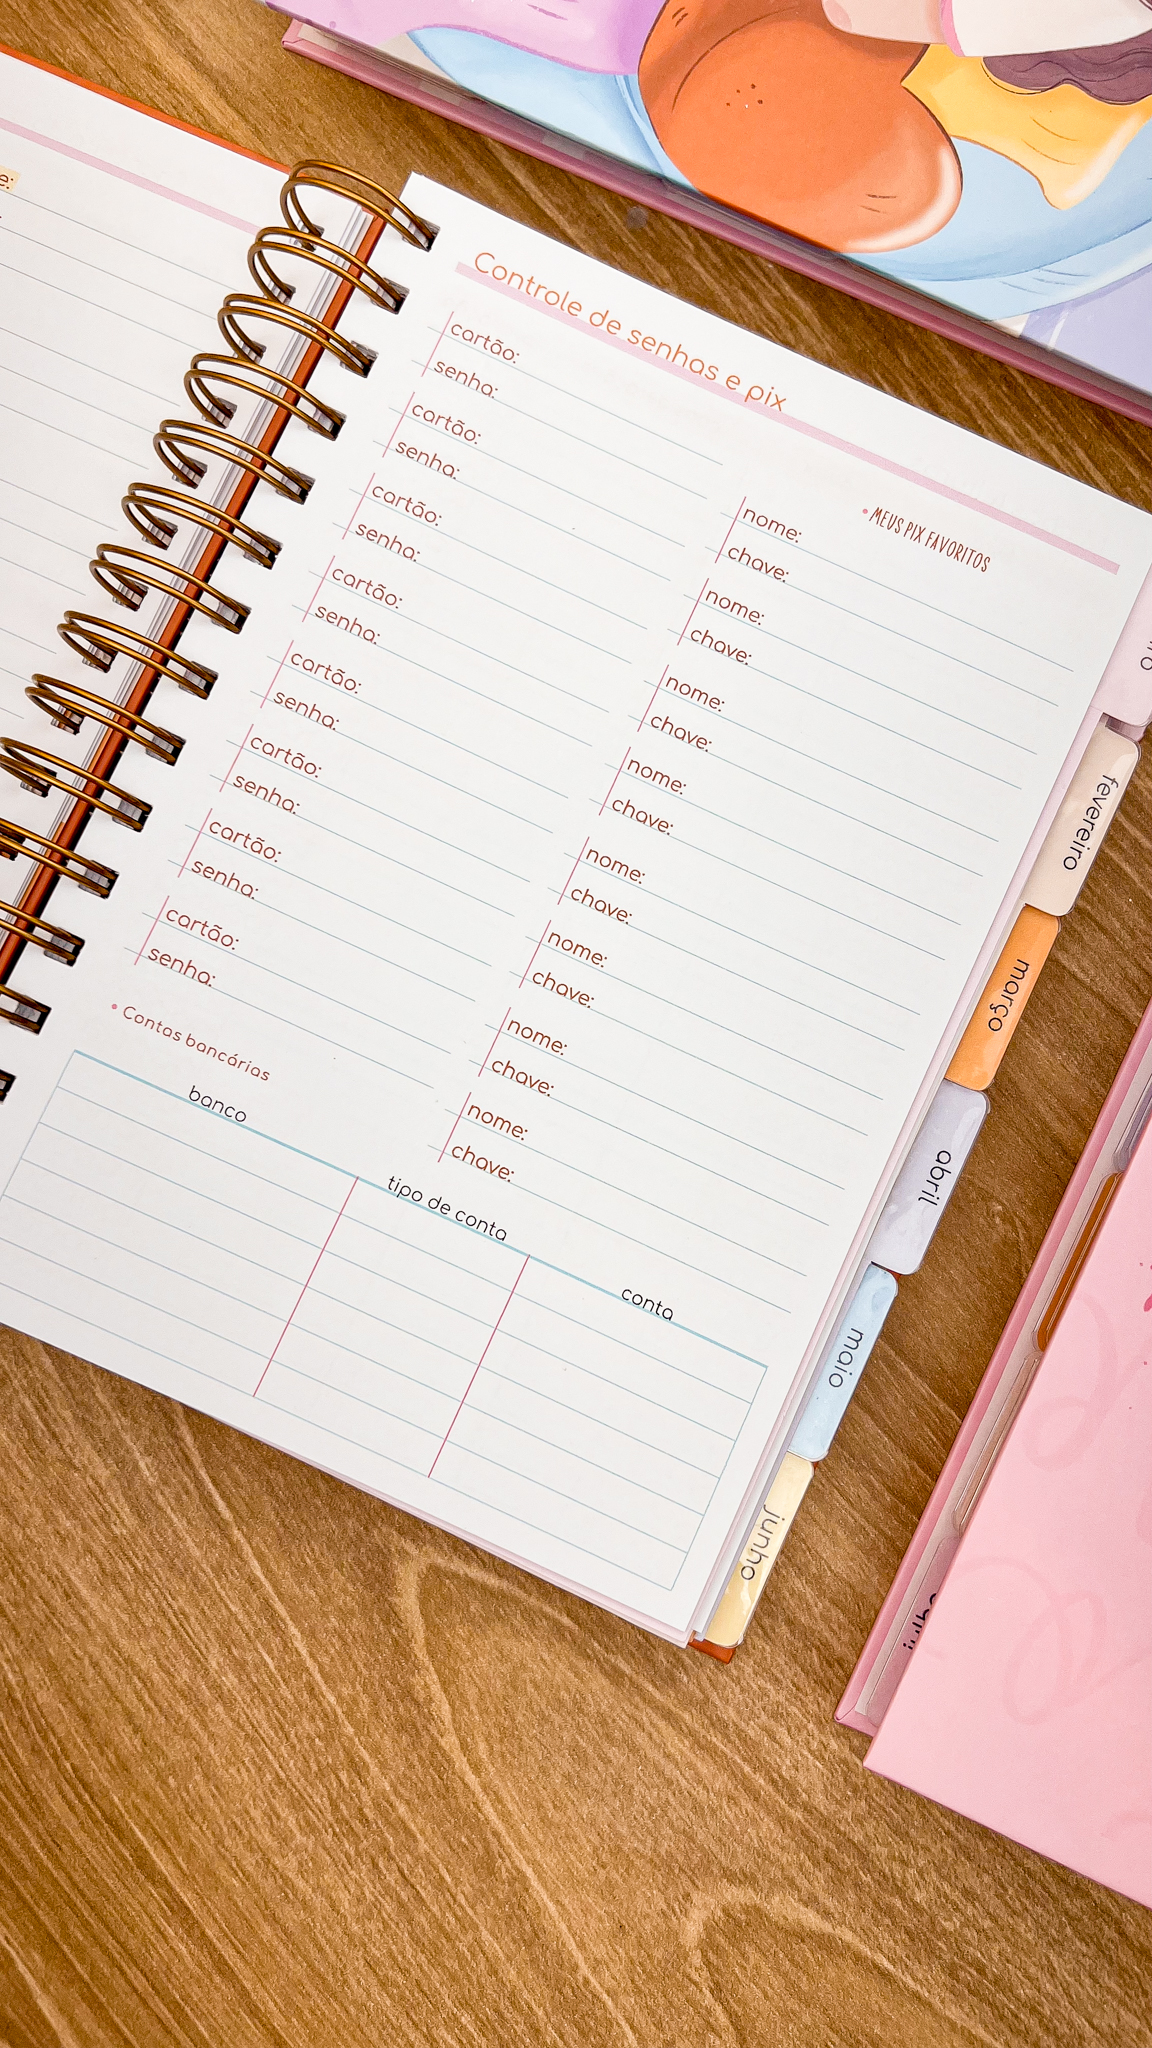 e:
Controle de senhas e pix
cartão:
senha:
cartão:
senha:
cartão:
senha:
cartão:
senha:
cartão:
senha:
cartão:
senha:
cartão:
senha:
cartão:
senha:
• MEUS PIX FAVORITOS
nome:
chave:
nome:
chave:
nome:
chave:
nome:
chave:
nome:
chave:
nome:
chave:
nome:
chave:
nome:
chave:
• Contas bancárias
banco
tipo de conta
conta
iro
fevereiro
março
abril
maio
junho